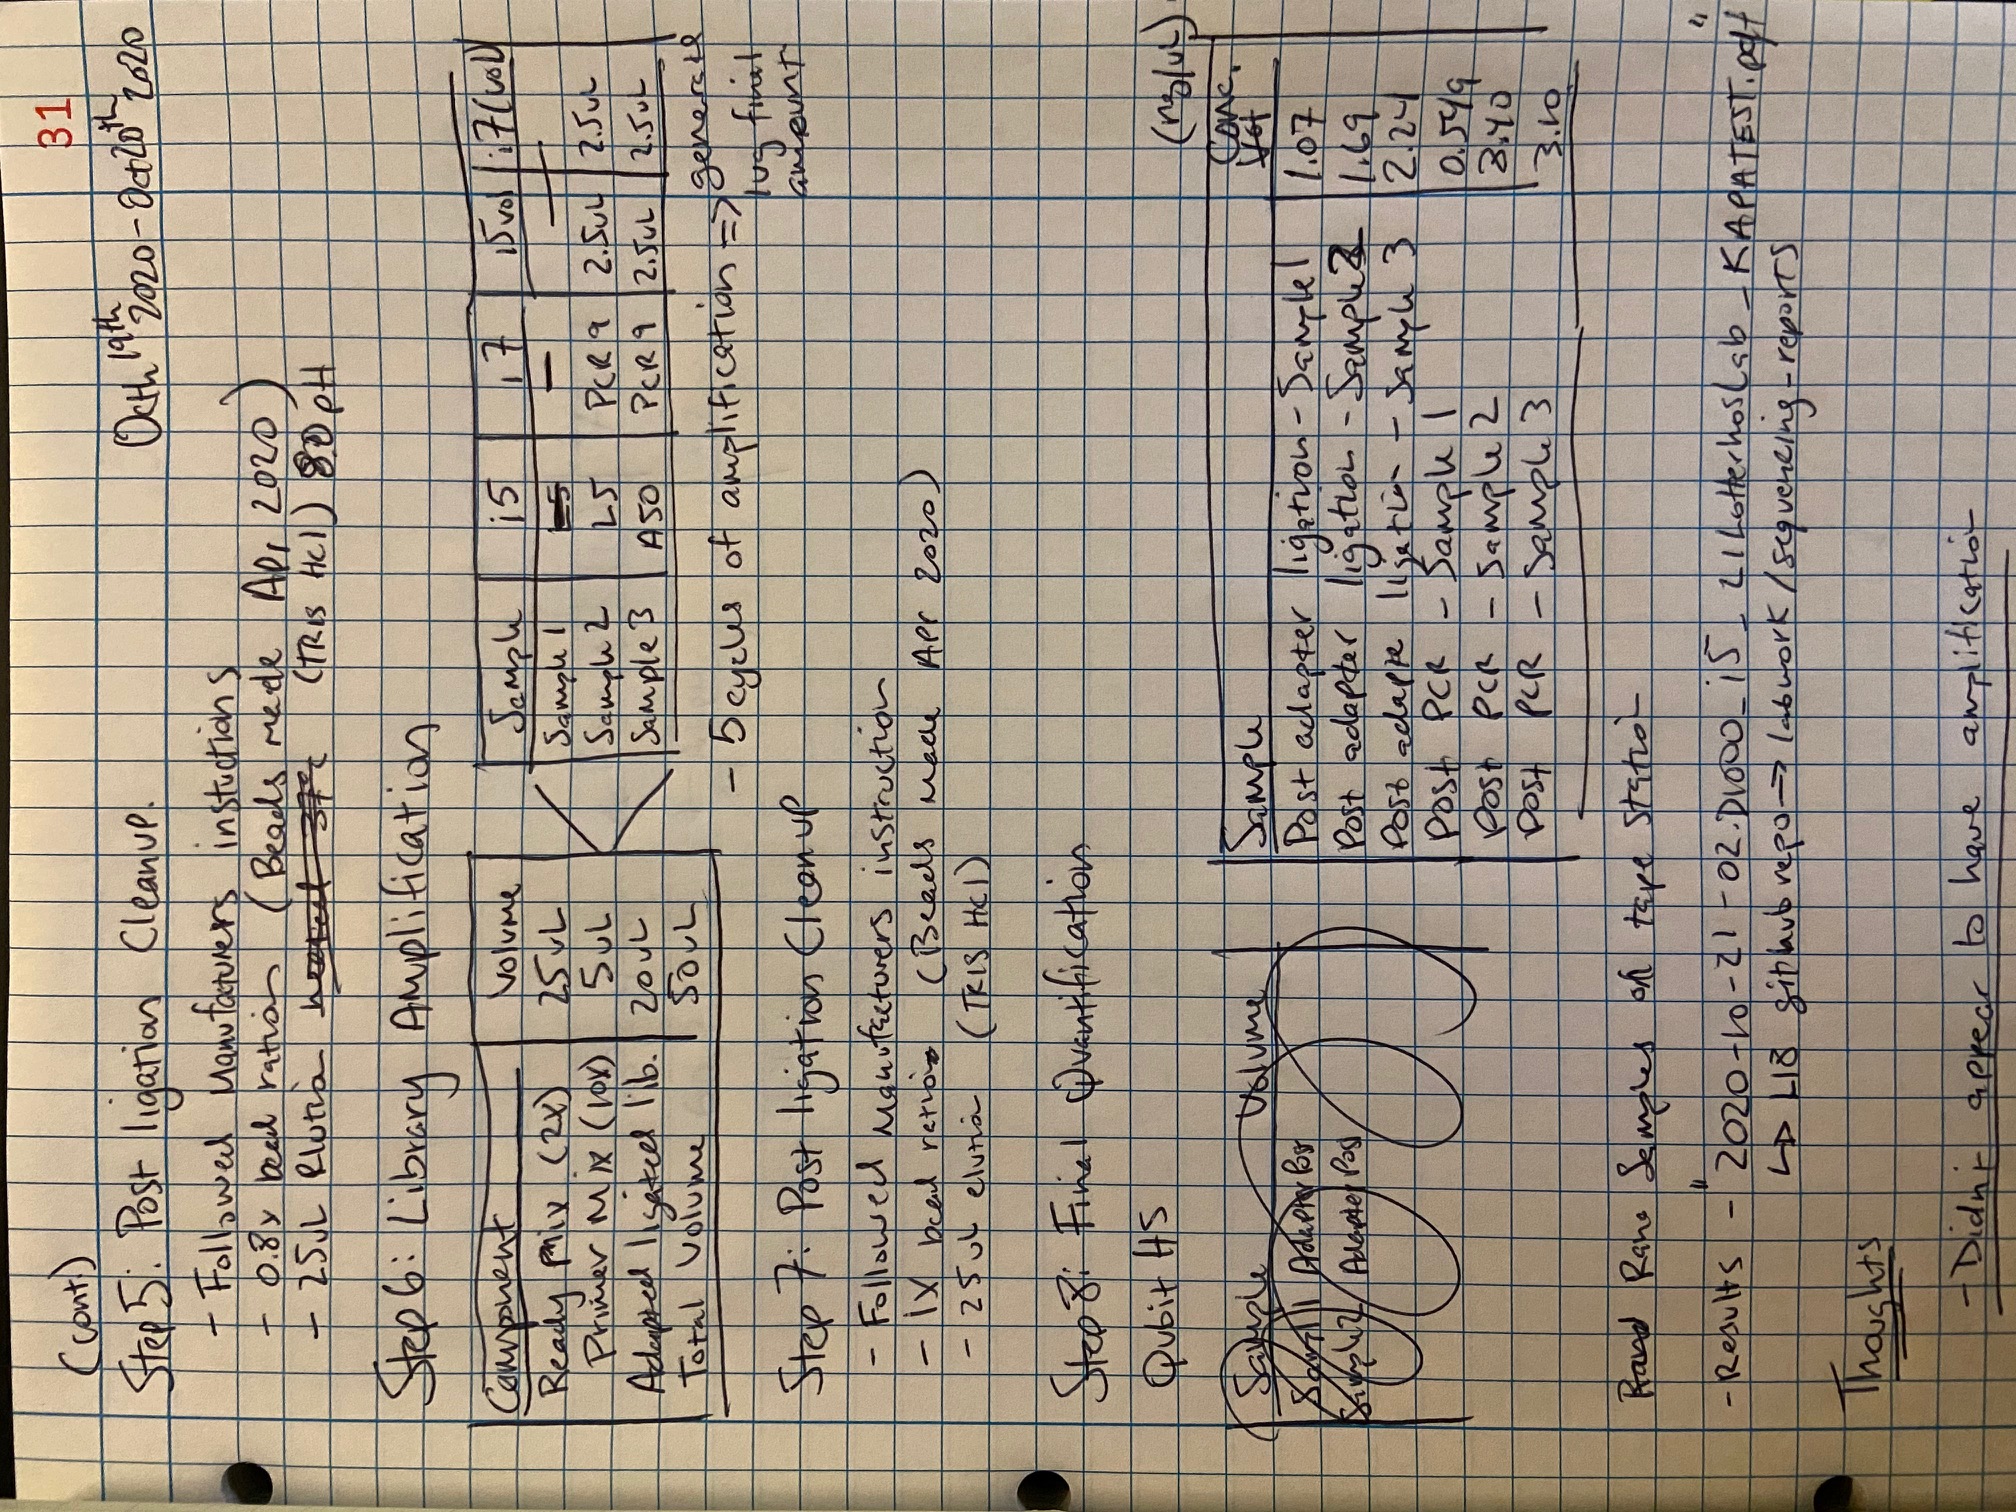 31
(cont.)
Step 5: Post ligation Cleanup.
Octh 19th 2020 - Oct 20th 2020
- Followed Manufacturers instuctions
- 0.8x bead ration (Beads made Apr 2020)
- 25uL Elution heated 37°c (TRIS HCl) 8.0 pH
Step 6: Library Amplification
Component Volume
Ready Mix (2x) 25uL
Primer Mix (10x) 5uL
Adapted ligated lib. 20uL
Total Volume 50uL
Sample i5 i7 i5 vol i7 (vol)
Sample 1 L5 — —
Sample 2 L5 PCR 9 2.5uL 2.5uL
Sample 3 A50 PCR 9 2.5uL 2.5uL
- 5 cycles of amplification => generate
1ug final
amount
Step 7: Post ligation Cleanup
- Followed Manufacturers instruction
- 1X bead ration (Beads made Apr 2020)
- 25uL elution (TRIS HCl)
Step 8: Final Quantification
Qubit HS
Sample Volume
Sampl 1 Adapter Post
Sample 2 Adapter Pos
(ng/uL)
Sample Conc.
Vol
Post adapter ligation - Sample 1 1.07
Post adapter ligation - Sample 2 1.69
Post adapte ligation - Sample 3 2.24
Post PCR - Sample 1 0.549
Post PCR - Sample 2 3.40
Post PCR - Sample 3 3.10
Rane Samples on tape station
- Results - "2020-10-21-02.D1000_i5_L1LotterhosLab_KAPATEST.pdf"
↳ L18 github repo -> labwork/sequencing-reports
Thoughts
- Didn't appear to have amplification